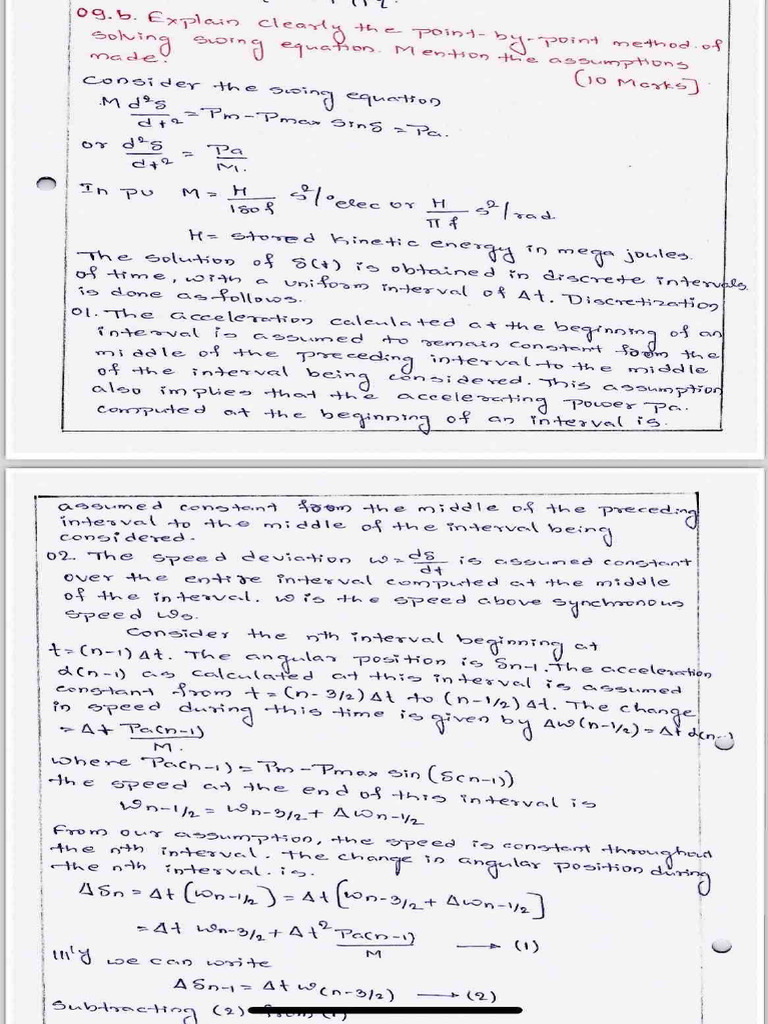 09.b. Explain clearly the point-by-point method of
solving swing equation. Mention the assumptions
made.
(10 Marks]
Consider the swing equation
M d²δ/dt² = Pm - Pmax sinδ = Pa.
or d²δ/dt² = Pa/M.
In pu M = H/180f s²/°elec or H/πf s²/rad
H = stored kinetic energy in mega joules.
The solution of δ(t) is obtained in discrete intervals
of time, with a uniform interval of Δt. Discretization
is done as follows.
01. The acceleration calculated at the beginning of an
interval is assumed to remain constant from the
middle of the preceding interval to the middle
of the interval being considered. This assumption
also implies that the accelerating power Pa.
computed at the beginning of an interval is.
assumed constant from the middle of the preceding
interval to the middle of the interval being
considered.
02. The speed deviation ω = dδ/dt is assumed constant
over the entire interval computed at the middle
of the interval. ω is the speed above synchronous
speed ωs.
Consider the nth interval beginning at
t = (n-1) Δt. The angular position is δn-1. The acceleration
α(n-1) as calculated at this interval is assumed
constant from t = (n-3/2) Δt to (n-1/2) Δt. The change
in speed during this time is given by Δω(n-1/2) = Δt α(n-1)
= Δt Pa(n-1)/M.
where Pa(n-1) = Pm - Pmax sin (δ(n-1))
the speed at the end of this interval is
ωn-1/2 = ωn-3/2 + Δωn-1/2
From our assumption, the speed is constant throughout
the nth interval. the change in angular position during
the nth interval. is.
Δδn = Δt (ωn-1/2) = Δt (ωn-3/2 + Δωn-1/2]
= Δt ωn-3/2 + Δt² Pa(n-1)/M → (1)
Ill'y we can write
Δδn-1 = Δt ω(n-3/2) → (2)
Subtracting (2) from (1)